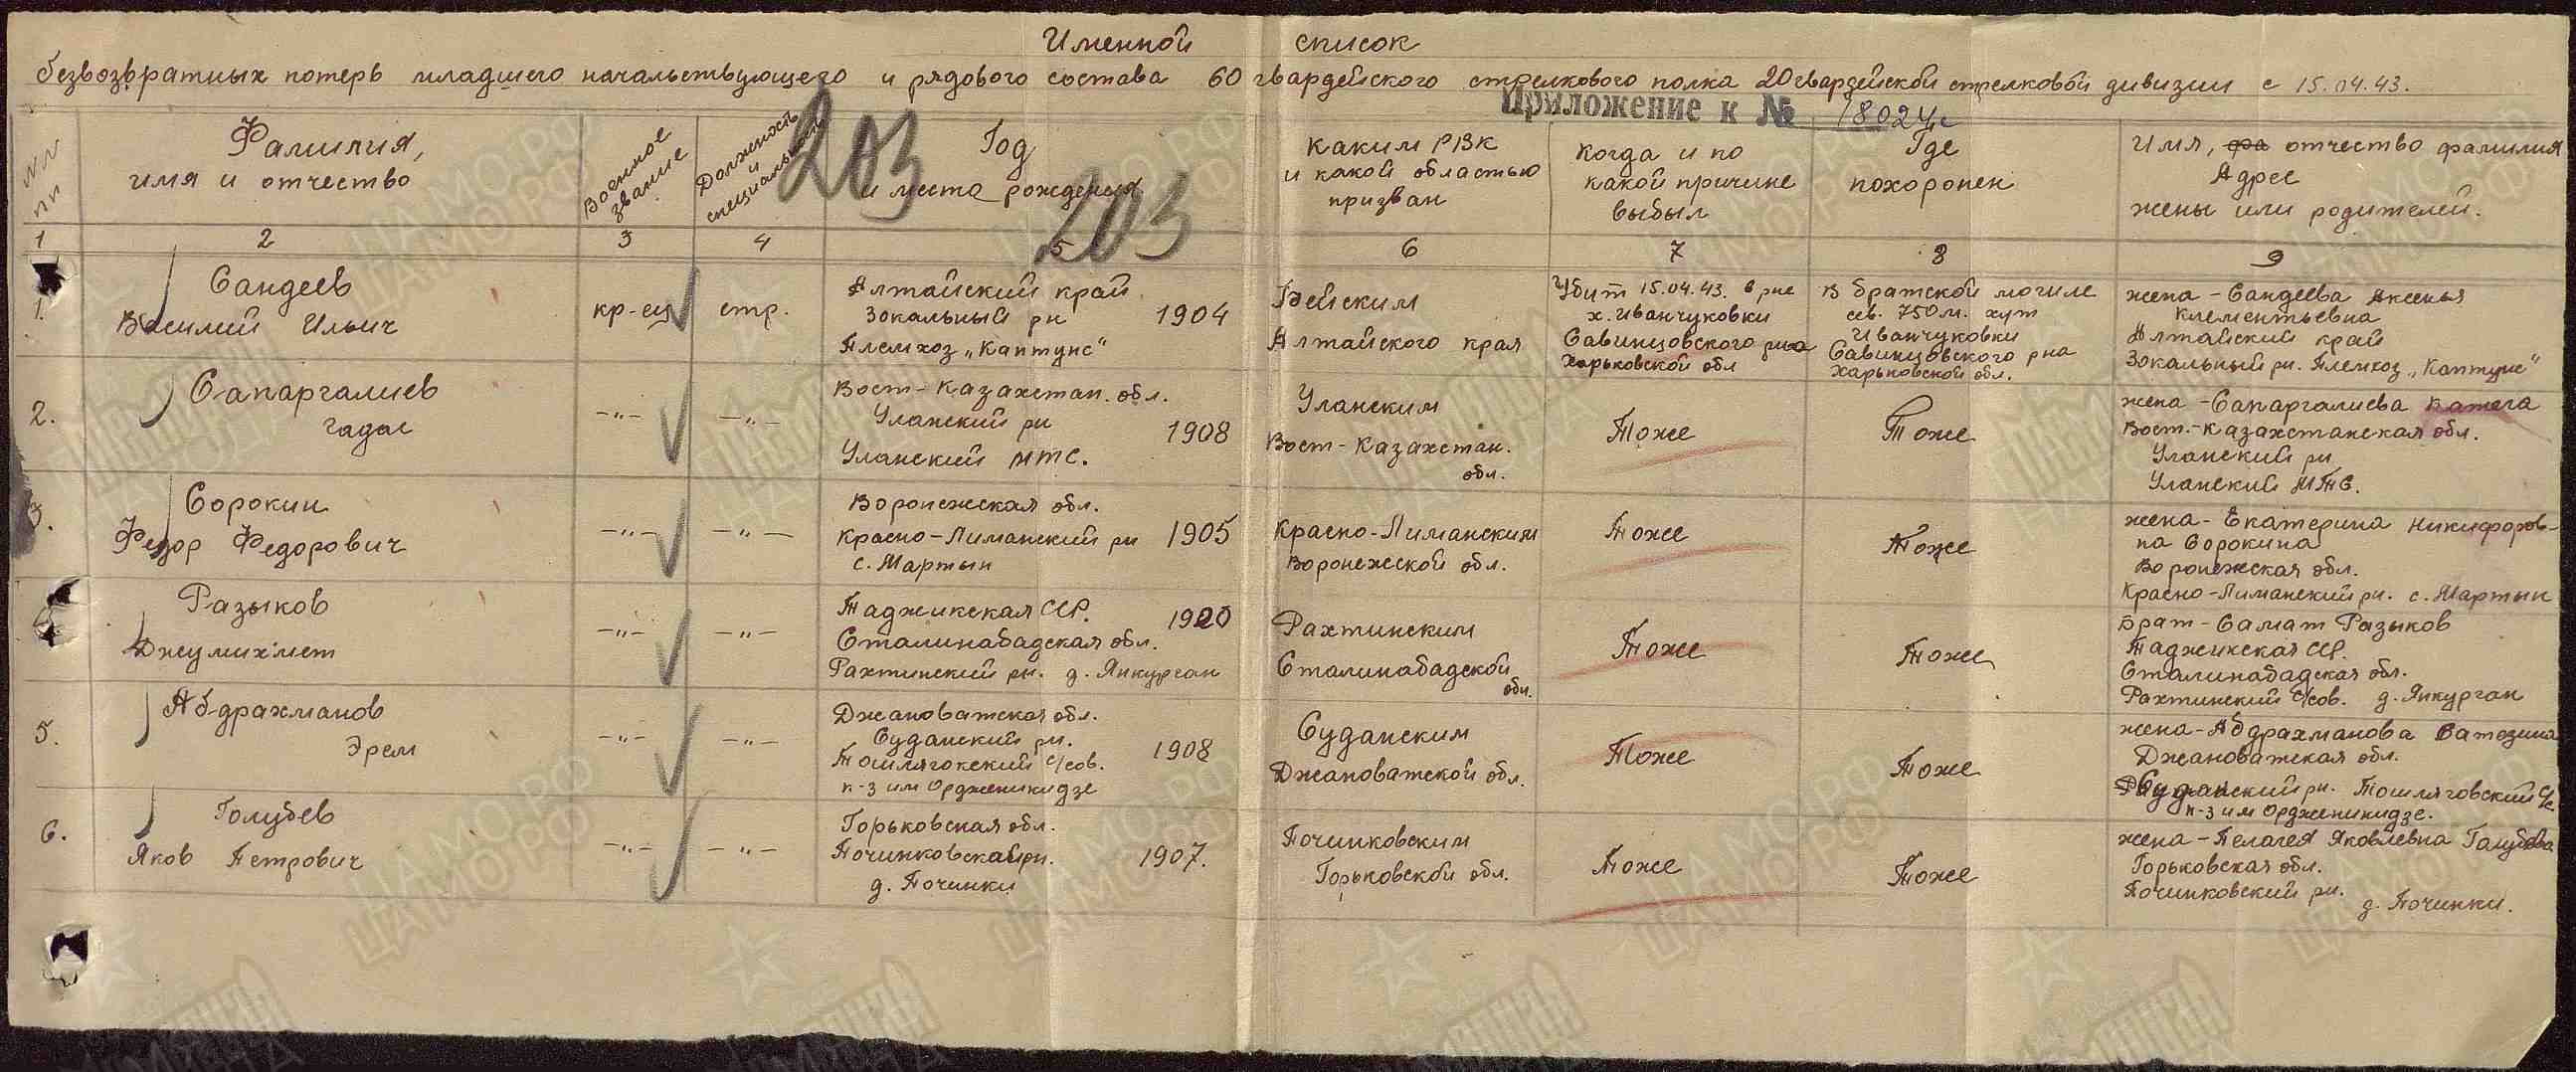 Именной список
безвозвратных потерь младшего начальствующего и рядового состава 60 гвардейского стрелкового полка 20 гвардейской стрелковой дивизии с 15.04.43.
Приложение к № 18024с
203
203
№№ пп
Фамилия,
имя и отчество
Военное
звание
Должность
и
специальность
Год
и места рождения
Каким РВК
и какой областью
призван
Когда и по
какой причине
выбыл
Где
похоронен
Имя, фа отчество фамилия
Адрес
жены или родителей.
1 2 3 4 5 6 7 8 9
1.
Сандеев
Василий Ильич
кр-ец
стр.
Алтайский край
Зокальный рн
Племхоз „Каптунс"
1904
Бейским
Алтайского края
Убит 15.04.43. в рне
х. Иванчуковки
Савинцовского рна
Харьковской обл
В братской могиле
сев. 750 м. хут
Иванчуковки
Савинцовского рна
Харьковской обл.
жена - Сандеева Аксенья
Клементьевна
Алтайский край
Зокальный рн. Племхоз „Каптунс"
2.
Сапаргалиев
Гадас
-"-
-"-
Вост-Казахстан. обл.
Уланский рн
Уланский мтс.
1908
Уланским
Вост-Казахстан.
обл.
Тоже
Тоже
жена - Сапаргалиева Катега
Вост.-Казахстанская обл.
Уланский рн
Уланский МТС.
3.
Сорокин
Федор Федорович
-"-
-"-
Воронежская обл.
Красно-Лиманский рн
с. Мартын
1905
Красно-Лиманским
Воронежской обл.
Тоже
Тоже
жена - Екатерина Никифоров-
на Сорокина
Воронежская обл.
Красно-Лиманский рн. с. Мартын
Разыков
Джумихмет
-"-
-"-
Таджикская ССР.
Сталинабадская обл.
Рахтинский рн. д. Янкурган
1920
Рахтинским
Сталинабадской
обл.
Тоже
Тоже
Брат - Самат Разыков
Таджикская ССР.
Сталинабадская обл.
Рахтинский с/сов. д. Янкурган
5.
Абдрахманов
Эрем
-"-
-"-
Джановатская обл.
Суданский рн.
Тошлягокский с/сов.
к-з им Ордженикидзе
1908
Суданским
Джановатской обл.
Тоже
Тоже
жена - Абдрахманова Ватезина
Джановатская обл.
Суданский рн. Тошляговский с/с
к-з им Ордженикидзе.
6.
Голубев
Яков Петрович
-"-
-"-
Горьковская обл.
Починковскайрн.
д. Починки
1907.
Починковским
Горьковской обл.
Тоже
Тоже
жена - Пелагея Яковлевна Голубева
Горьковская обл.
Починковский рн.
д. Починки.